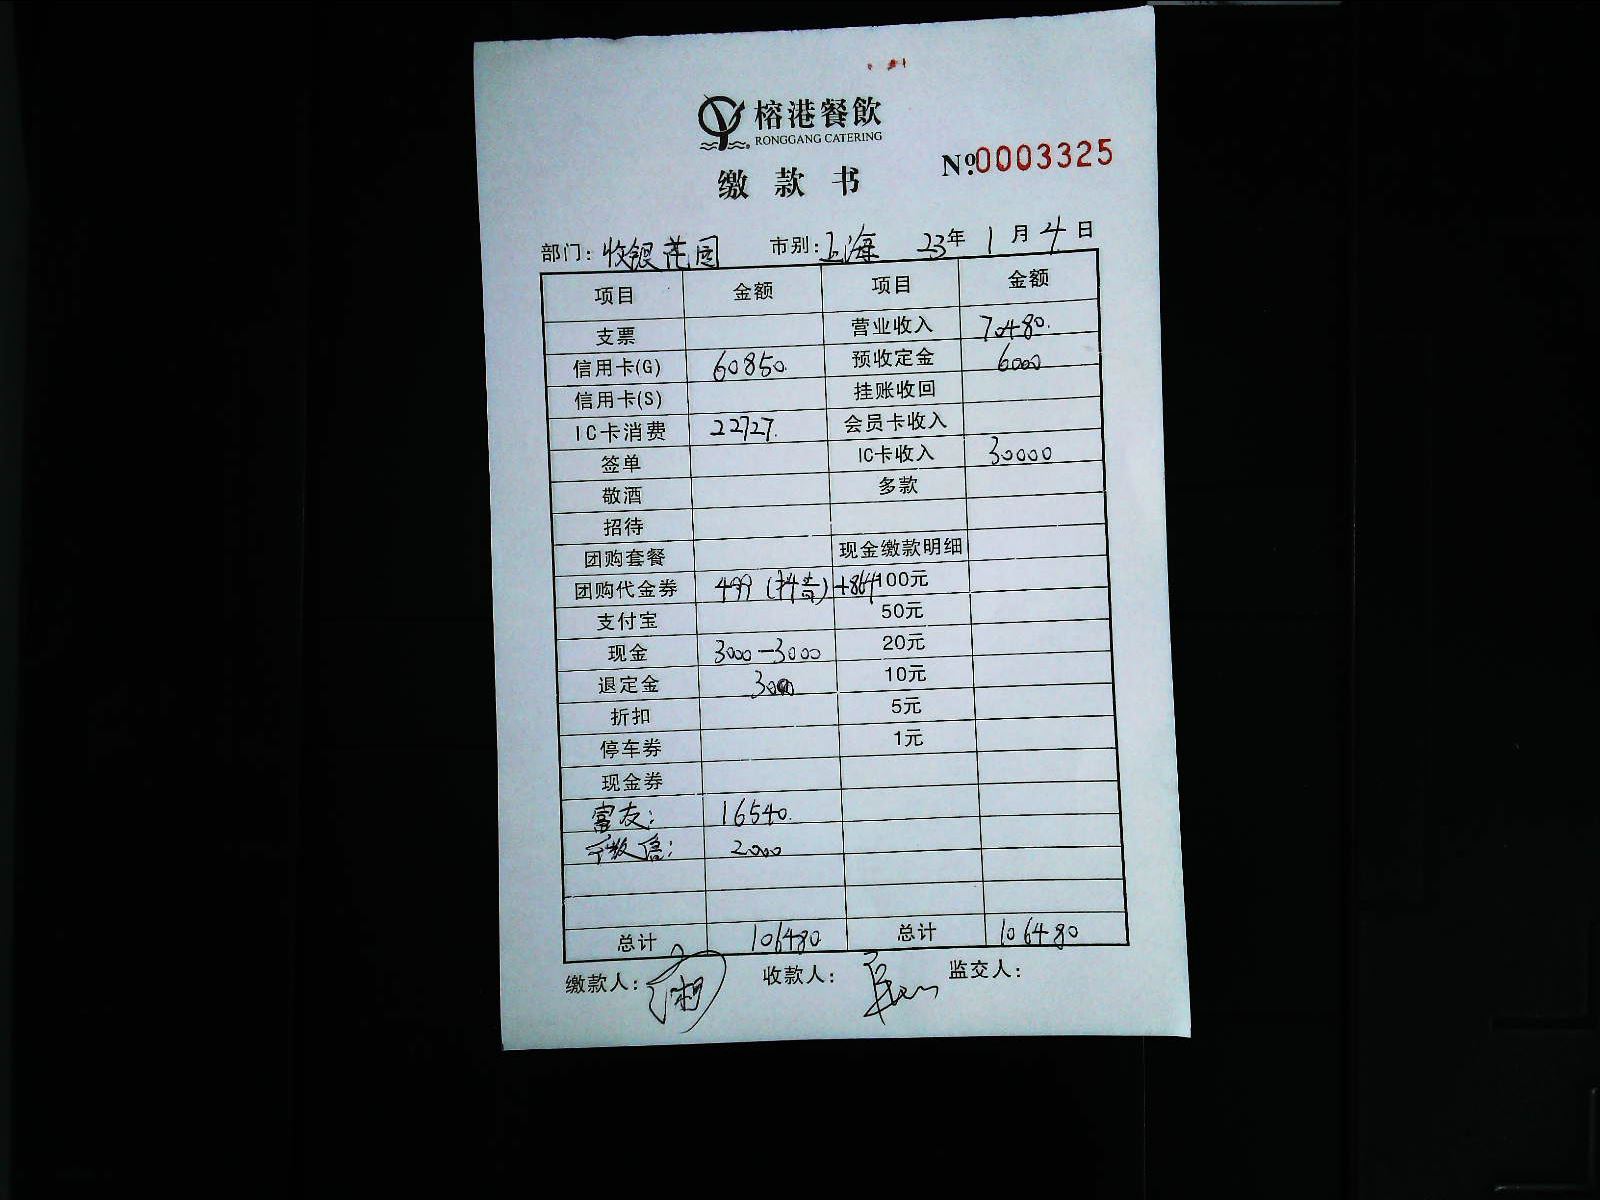 榕港餐飲
RONGGANG CATERING
№0003325
缴款书
部门：收银范围 市别：上海 23年 1月 4日
项目 金额 项目 金额
支票 营业收入 70480.
信用卡(G) 60850. 预收定金 6000
信用卡(S) 挂账收回
IC卡消费 22727. 会员卡收入
签单 IC卡收入 30000
敬酒 多款
招待
团购套餐 现金缴款明细
团购代金券 499 (抖音)+864 100元
支付宝 50元
现金 3000-3000 20元
退定金 3000 10元
折扣 5元
停车券 1元
现金券
富友： 16540.
2000
总计 106480 总计 106480
缴款人： 收款人： 监交人：